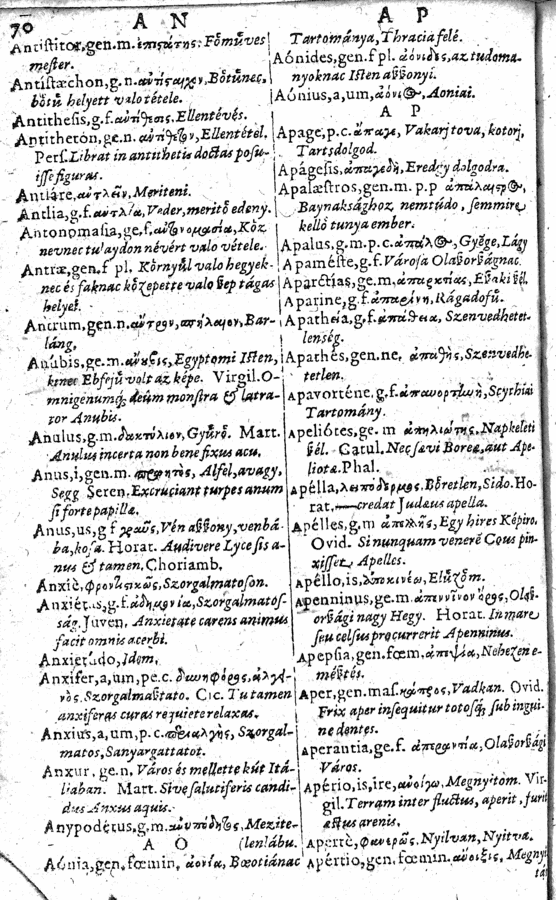 70
A N
Antistitor, gen.m. ἐπιστάτης: Fömű́ves
mester.
Antistæchon, g.n. Bötűnec,
bötű helyett valo tétele.
Antithesis, g.f. ἀντίθεσις. Ellentévés.
Antitheton, ge.n. ἀντίθετον, Ellentétel.
Pers. Librat in antithetis doctas posu-
isse figuras.
Antlare, ἀντλεῖν, Meriteni.
Antlia, g.f. ἀντλία, Veder, meritö edeny.
Antonomasia, ge.f. ἀντονομασία, Köz
nevnec tulaydon névért valo vétele.
Antræ, gen.f pl. Környűl valo hegyek-
nec és faknac közepette valo ßep tágas
helyek.
Antrum, gen.n. ἄντρον, σπήλαιον, Bar-
láng.
Anubis, ge.m. ἄνουβις, Egyptomi Isten,
kinec Ebfejű volt az képe. Virgil. O-
mnigenumq; deûm monstra & latra-
tor Anubis.
Anulus, g.m. δακτύλιον, Gyűrö. Mart.
Anulus incerta non bene fixus acu.
Anus, i, gen.m. πρωκτὸς, Alfel, avagy,
Segg Seren. Excruciant turpes anum
si forte papillæ.
Anus, us, g f γραῦς, Vén aßßony, venbá-
ba, kosa. Horat. Audivere Lyce fis a-
nus & tamen, Choriamb.
Anxiè, φροντιστικῶς, Szorgalmatoson.
Anxietas, g.f. ἀδημονία, Szorgalmatos-
ság. Juven. Anxietate carens animus
facit omnis acerbi.
Anxietudo, Idem.
Anxifer, a, um, pe.c.
Szorgalmaßtato. Cic. Tu tamen
anxiferas curas requiete relaxas.
Anxius, a, um, p.c. περιαλγὴς, Szorgal-
matos, Sanyargattatot.
Anxur, ge.n. Város és mellette kút Itá-
liaban. Mart. Sive salutiferis candi-
dus Anxus aquis.
Anypodetus, g.m. ἀνυπόδητος, Mezite-
A O (len lábu.
Aónia, gen. fœmin. ἀονία, Bœotiánac
A P
Tartománya, Thracia felé.
Aónides, gen.f pl. ἀόνιδες, az tudoma-
nyoknac Isten aßßonyi.
Aónius, a, um, ἀόνιος, Aoniai.
A P
Apage, p.c. ἄπαγε, Vakarj tova, kotorj,
Tarts dolgod.
Apágesis, Eredgy dolgodra.
Apalæstros, gen.m. p.p ἀπάλαιστρος,
Baynaksághoz nemtúdo, semmire
kellö tunya ember.
Apalus, g.m. p.c. ἁπαλὸς, Gyenge, Lágy
Apaméste, g.f. Városa Olaßorßágnac.
Aparctias, ge.m. ἀπαρκτίας, Eßaki ßél.
Aparine, g.f. ἀπαρίνη, Rágadofű.
Apatheia, g.f. ἀπάθεια, Szenvedhetet-
lenség.
Apathes, gen.ne. ἀπαθὴς, Szenvedhe-
tetlen.
Apavorténe, g.f. Scythiai
Tartomány.
Apeliótes, ge.m ἀπηλιώτης, Napkeleti
ßél. Catul. Nec sævi Boreæ, aut Ape-
liotæ. Phal.
Apélla, λειπόδερμος, Böretlen, Sido. Ho-
rat. —credat Judæus apella.
Apélles, g.m ἀπελλῆς, Egy hires Képiro,
Ovid. Si nunquam venerē Cous pin-
xisset Apelles.
Apéllo, is, ἀποκινέω, Elűzöm.
Apenninus, ge.m. ἀπεννῖνον ὄρος, Olaß-
orßági nagy Hegy. Horat. In mare
seu celsus procurrerit Apenninus.
Apepsia, gen.fœm. ἀπεψία, Nehezen e-
méßtés.
Aper, gen.mas. κάπρος, Vadkan. Ovid.
Frix aper insequitur totosq; sub ingui-
ne dentes.
Aperantia, ge.f. ἀπεραντία, Olaßorßági
Város.
Apério, is, ire, ἀνοίγω, Megnyitom. Vir-
gil. Terram inter fluctus, aperit, furit
æstus arenis.
Apertè, φανερῶς. Nyilvan, Nyitva.
Apértio, gen. fœmin. ἄνοιξις, Megnyi-
tá